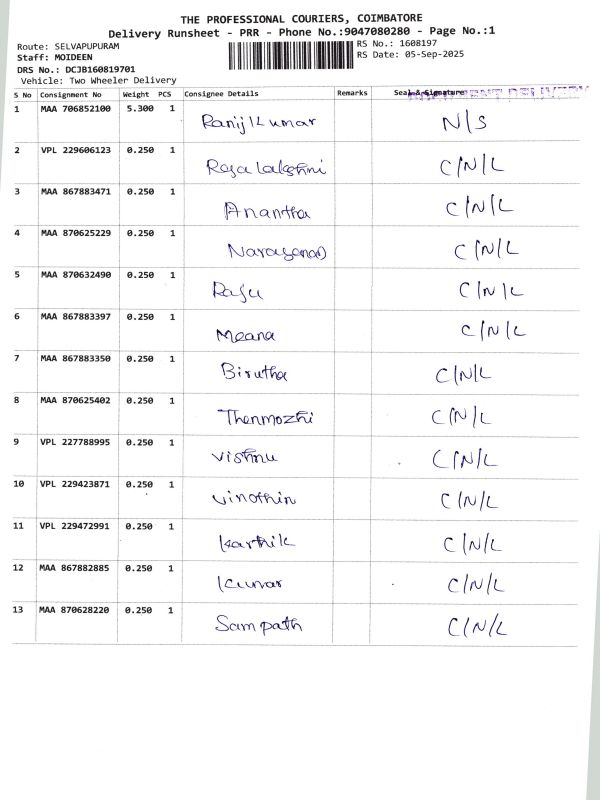 THE PROFESSIONAL COURIERS, COIMBATORE
Delivery Runsheet - PRR - Phone No.:9047080280 - Page No.:1
Route: SELVAPUPURAM
Staff: MOIDEEN
DRS No.: DCJB160819701
Vehicle: Two Wheeler Delivery
RS No.: 1608197
RS Date: 05-Sep-2025
S No Consignment No Weight PCS Consignee Details Remarks Seal & Signature
1 MAA 706852100 5.300 1 Ranjilkumar N/S
2 VPL 229606123 0.250 1 Rajalakshmi C/N/L
3 MAA 867883471 0.250 1 Anantha C/N/L
4 MAA 870625229 0.250 1 Narayanan C/N/L
5 MAA 870632490 0.250 1 Raju C/N/L
6 MAA 867883397 0.250 1 Meana C/N/L
7 MAA 867883350 0.250 1 Birutha C/N/L
8 MAA 870625402 0.250 1 Thenmozhi C/N/L
9 VPL 227788995 0.250 1 Vishnu C/N/L
10 VPL 229423871 0.250 1 Vinothin C/N/L
11 VPL 229472991 0.250 1 Karthik C/N/L
12 MAA 867882885 0.250 1 Kumar C/N/L
13 MAA 870628220 0.250 1 Sampath C/N/L